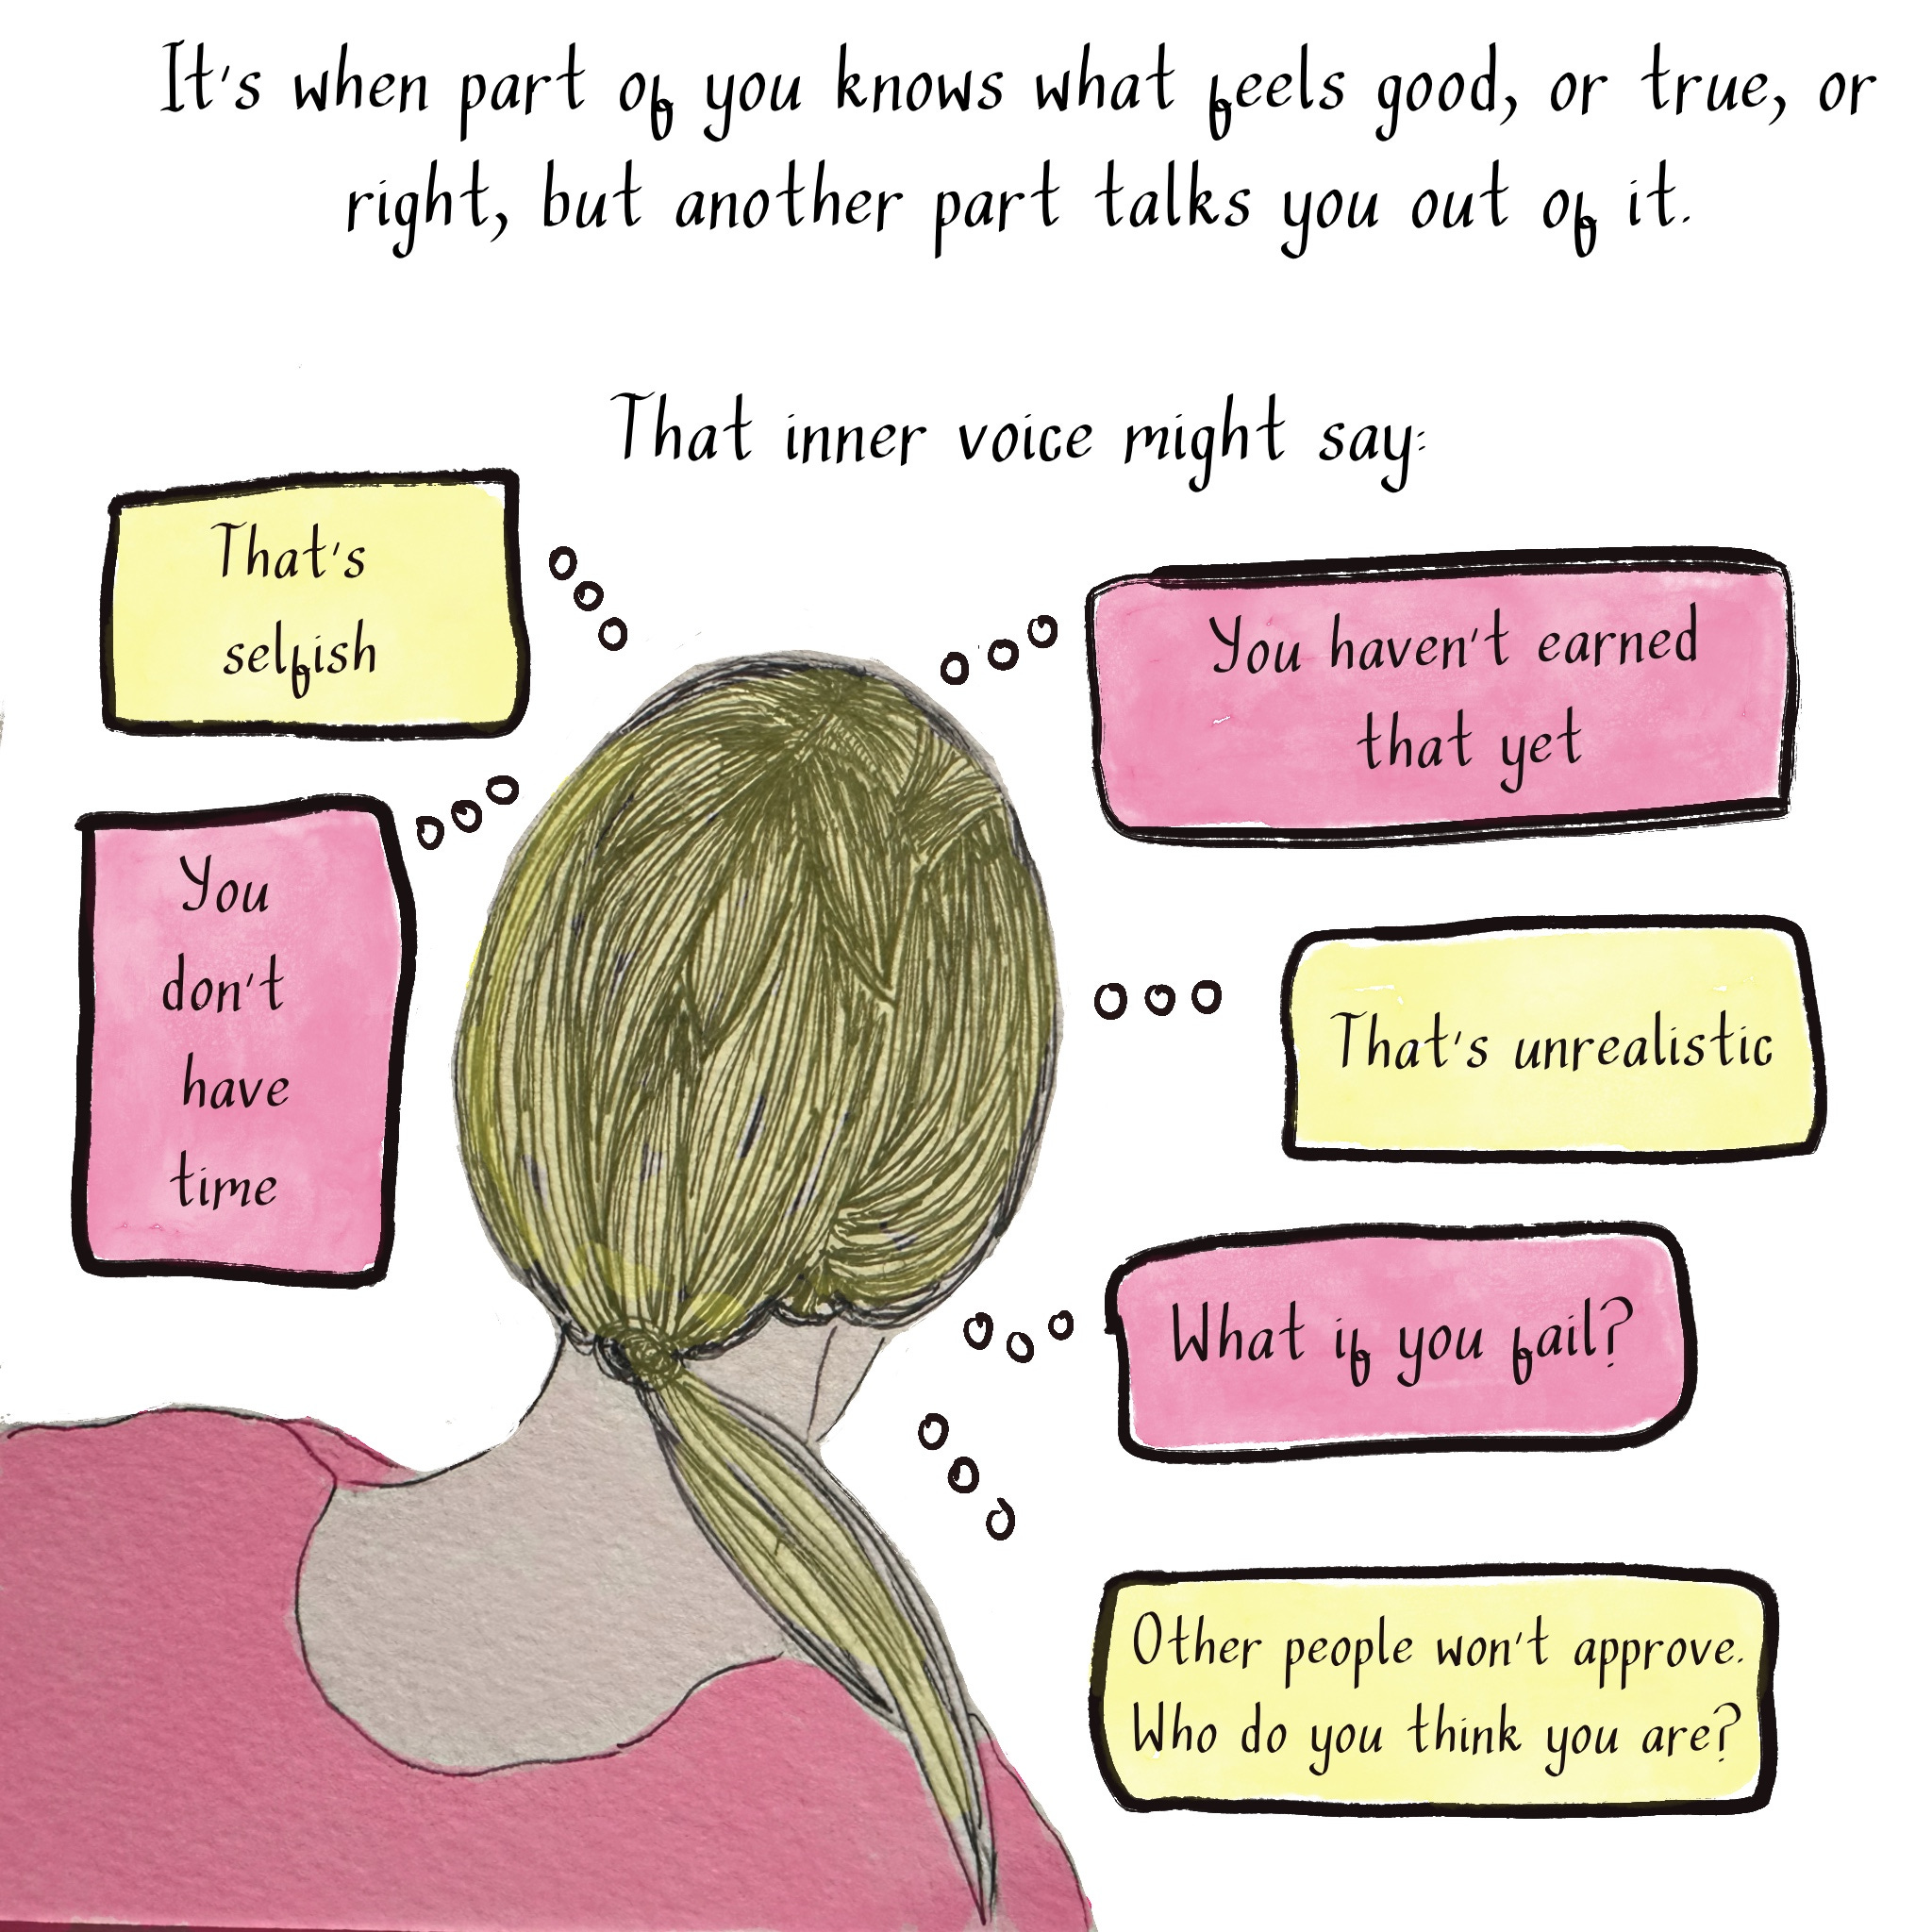 It's when part of you knows what feels good, or true, or
right, but another part talks you out of it.
That inner voice might say:
That's
selfish
You haven't earned
that yet
You
don't
have
time
That's unrealistic
What if you fail?
Other people won't approve.
Who do you think you are?